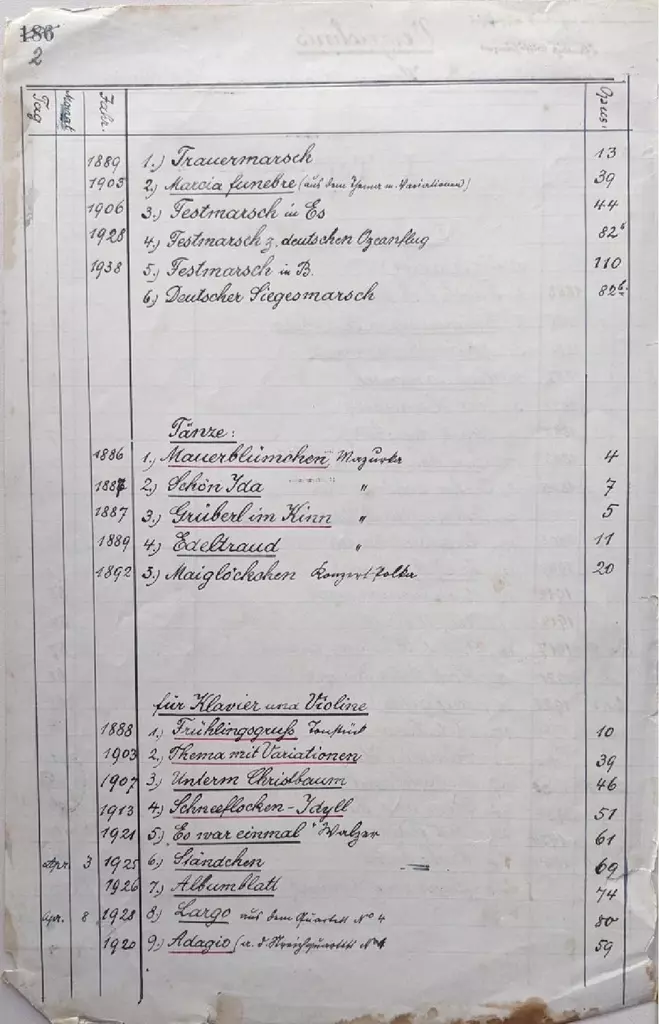 186
2
Tag Monat Jahr. Opus:
1889 1.) Trauermarsch 13
1903 2.) Marcia funebre (aus dem Thema m. Variationen) 39
1906 3.) Festmarsch in Es 44
1928 4.) Festmarsch z. deutschen Ozeanflug 82b
1938 5.) Festmarsch in B. 110
6.) Deutscher Siegesmarsch 82b.
Tänze:
1886 1.) Mauerblümchen, Mazurka 4
1887 2.) Schön Ida " 7
1887 3.) Grüberl im Kinn " 5
1889 4.) Edeltraud " 11
1892 5.) Maiglöckchen Konzert Polka 20
für Klavier und Violine
1888 1.) Frühlingsgruß Tonstück 10
1903 2.) Thema mit Variationen 39
1907 3.) Unterm Christbaum 46
1913 4.) Schneeflocken-Idyll 51
1921 5.) Es war einmal Walzer 61
Apr. 3 1925 6.) Ständchen 69
1926 7.) Albumblatt 74
Apr. 8 1928 8.) Largo aus dem Quartett No 4 80
1920 9.) Adagio (a. d. Streichquartett No 1 59